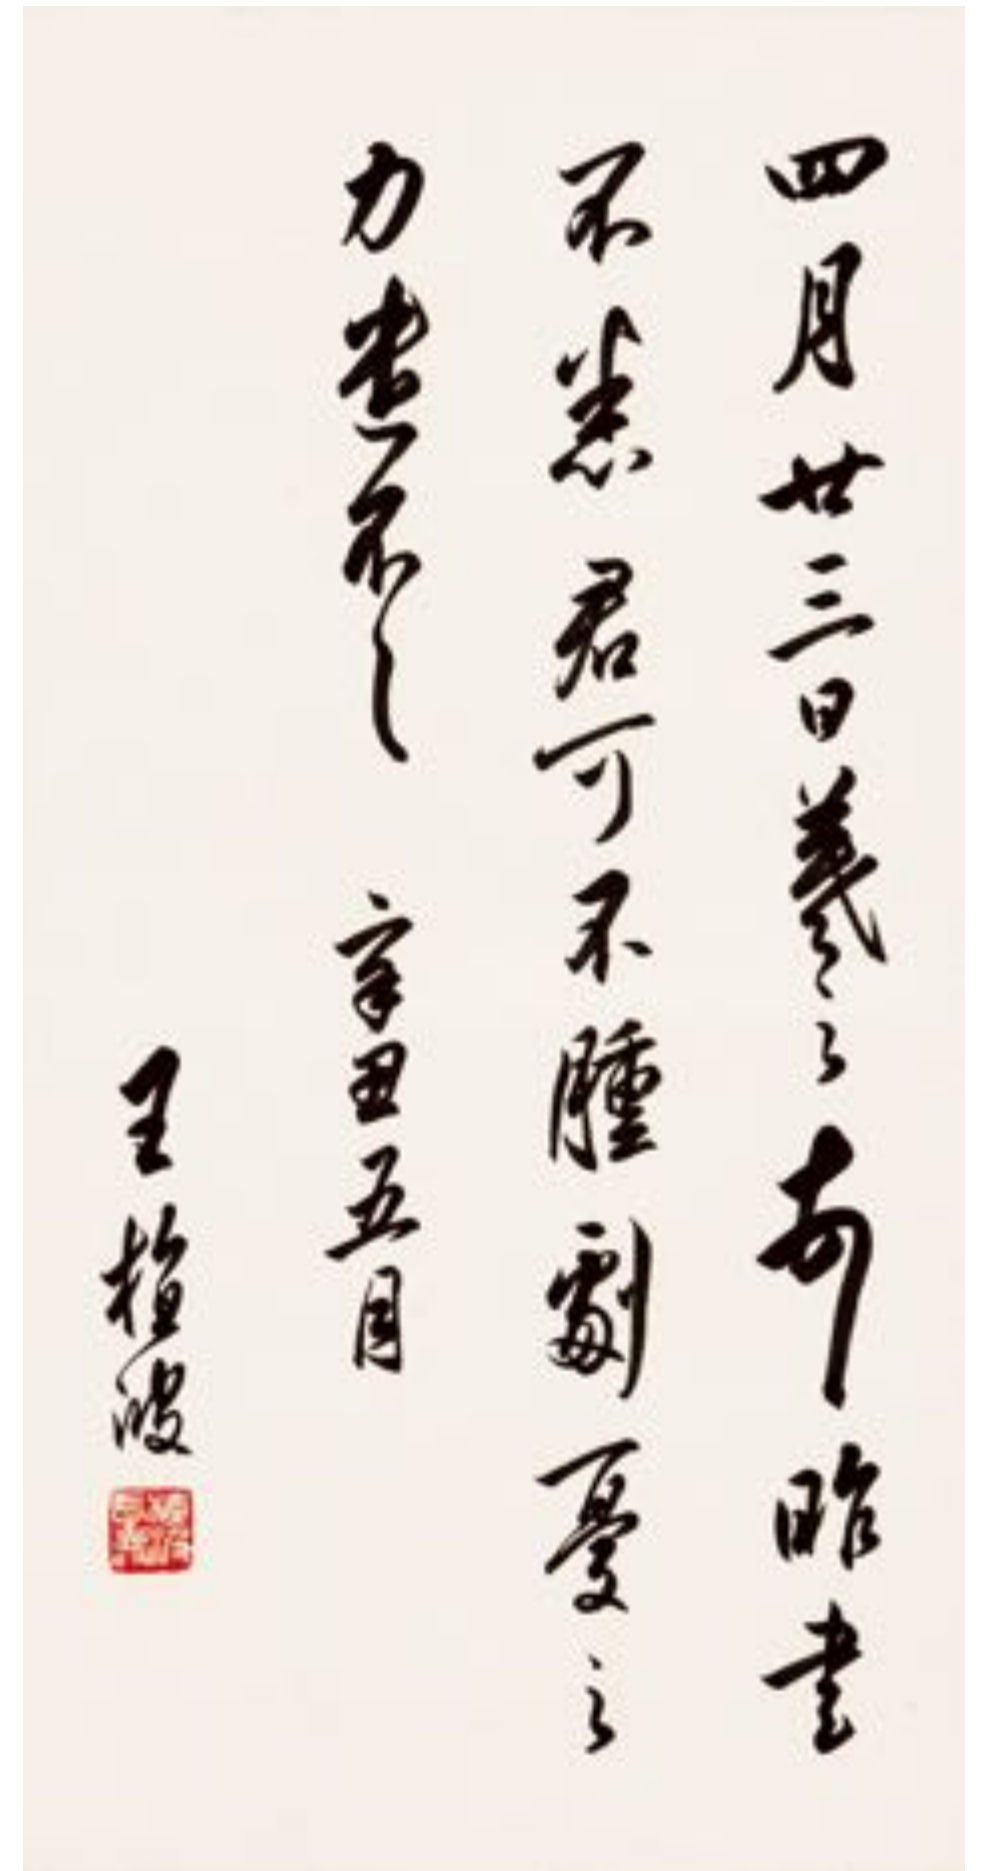 四月廿三日羲之頓首昨書
不悉君可不腫劇憂之
力遣不
辛丑五月
王植波